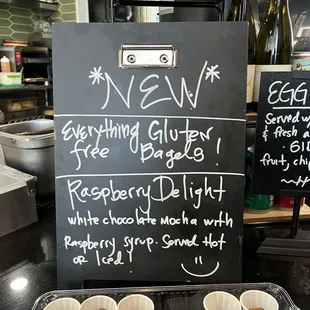 *NEW*
Everything Gluten
free Bagels!
Raspberry Delight
white chocolate Mocha with
Raspberry syrup. Served Hot
or Iced!
EGG
Served w
& fresh a
fruit, chip